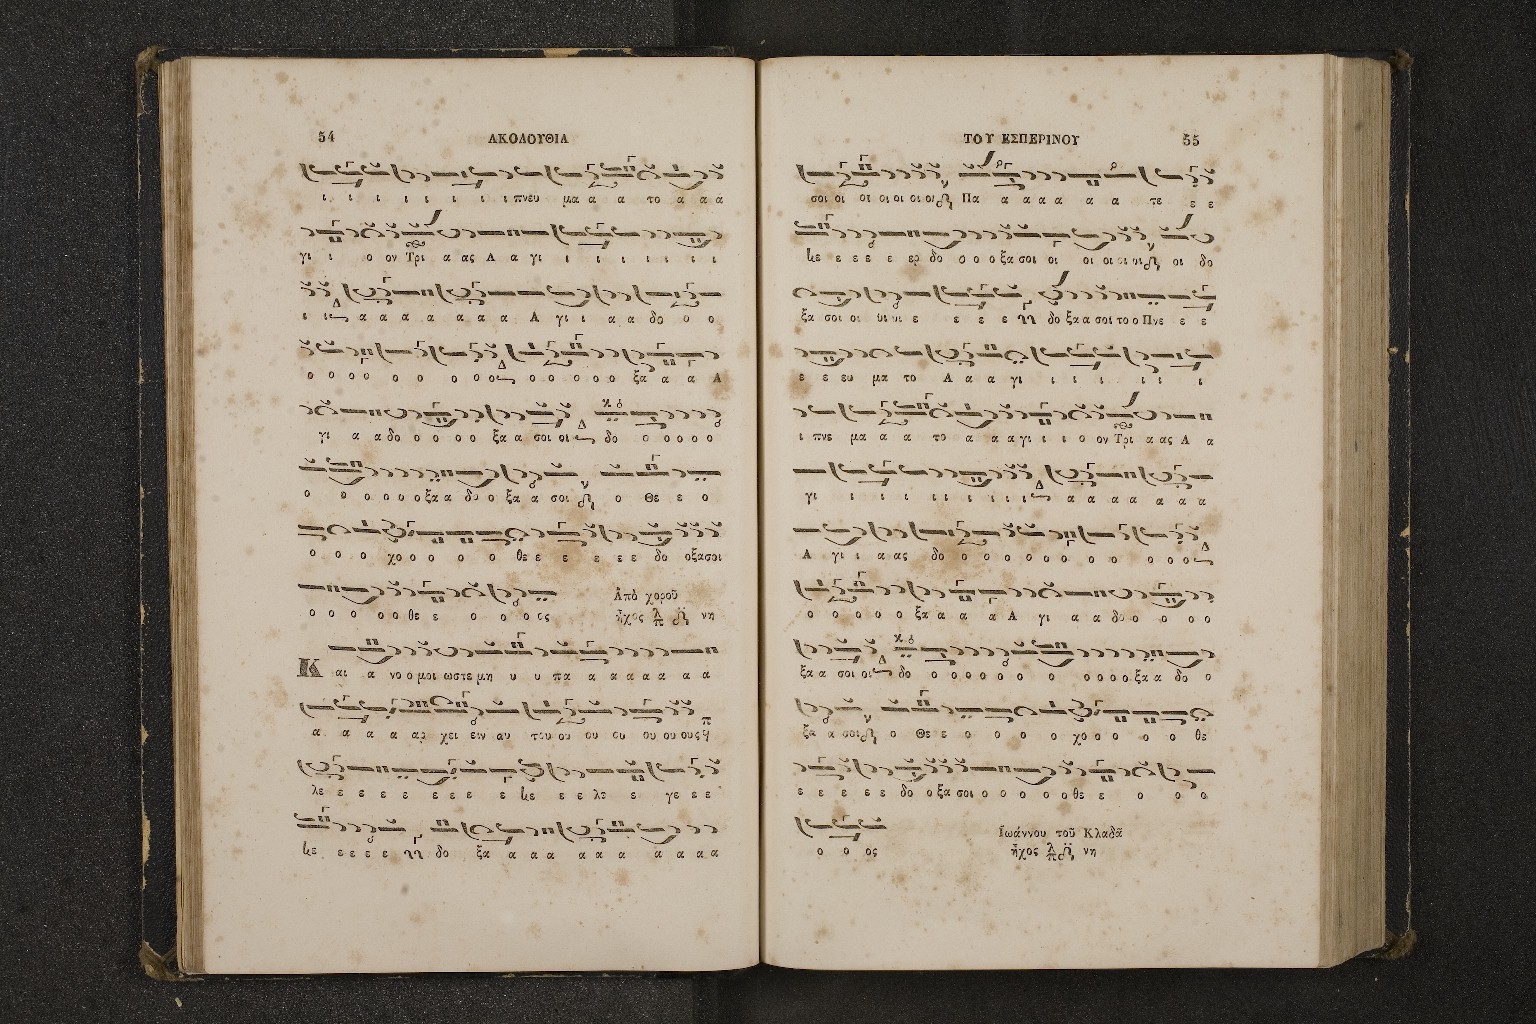 54 ΑΚΟΛΟΥΘΙΑ
ι ι ι ι ι ι ι ι πνευ μα α α το α α α
γι ι ο ον Τρι α ας Α α γι ι ι ι ι ι ι ι
ι ι α α α α α α α α Α γι ι α α δο ο ο
ο ο ο ο ο ο ο ο ο ο ο ο ο ο ξα α α Α
γι α α δο ο ο ο ο ξα α σοι οι δο ο ο ο ο ο
ο ο ο ο ο ο ξα α δο ο ξα α σοι ο Θε ε ο
ο ο ο χο ο ο ο ο θε ε ε ε ε ε δο οξασοι
ο ο ο ο ο θε ε ο ο ο ος Ἀπὸ χοροῦ
ἦχος νη
Και α νο ο μοι ωστε μη υ υ πα α α α α α α
α α α α αρ χει ειν αυ του ου ου ου ου ου ους
λε ε ε ε ε ε ε ε ε κε ε ε λε ε γε ε ε
κε ε ε ε ε δο ξα α α α α α α α α α α
ΤΟΥ ΕΣΠΕΡΙΝΟΥ 55
σοι οι οι οι οι οι οι Πα α α α α α α τε ε ε
κε ε ε ε ε ερ δο ο ο ο ξα σοι οι οι οι οι οι οι δο
ξα σοι οι οι οι ε ε ε ε δο ξα α σοι το ο Πνε ε ε
ε ε ευ μα το Α α α γι ι ι ι ι ι ι
ι πνε μα α α το α α α γι ι ι ο ον Τρι α ας Α α
γι ι ι ι ι ι ι ι ι ι α α α α α α α
Α γι ι α ας δο ο ο ο ο ο ο ο ο ο ο ο ο
ο ο ο ο ο ξα α α α Α γι α α δο ο ο ο ο
ξα α σοι οι δο ο ο ο ο ο ο ο ο ο ο ο ξα α δο ο
ξα α σοι ο Θε ε ο ο ο ο χο ο ο ο ο θε
ε ε ε ε ε δο ο ξα σοι ο ο ο ο ο θε ε ο ο ο
ο ο ος Ἰωάννου τοῦ Κλαδᾶ
ἦχος νη